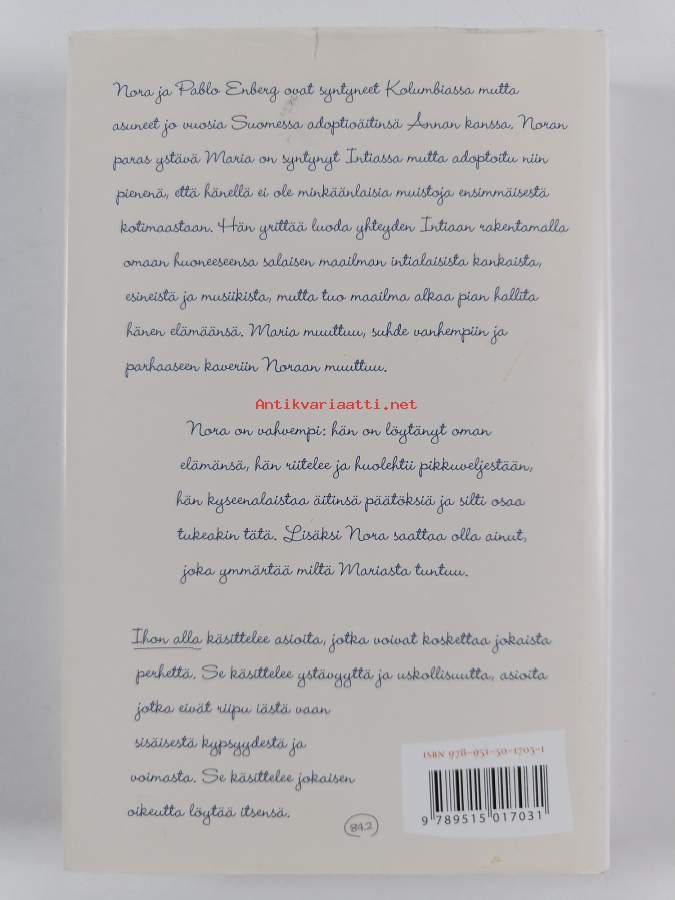 Nora ja Pablo Enberg ovat syntyneet Kolumbiassa mutta
asuneet jo vuosia Suomessa adoptioäitinsä Annan kanssa. Noran
paras ystävä Maria on syntynyt Intiassa mutta adoptoitu niin
pienenä, että hänellä ei ole minkäänlaisia muistoja ensimmäisestä
kotimaastaan. Hän yrittää luoda yhteyden Intiaan rakentamalla
omaan huoneeseensa salaisen maailman intialaisista kankaista,
esineistä ja musiikista, mutta tuo maailma alkaa pian hallita
hänen elämäänsä. Maria muuttuu, suhde vanhempiin ja
parhaaseen kaveriin Noraan muuttuu.
Antikvariaatti.net
Nora on vahvempi: hän on löytänyt oman
elämänsä, hän riitelee ja huolehtii pikkuveljestään,
hän kyseenalaistaa äitinsä päätöksiä ja silti osaa
tukeakin tätä. Lisäksi Nora saattaa olla ainut,
joka ymmärtää miltä Mariasta tuntuu.
Ihon alla käsittelee asioita, jotka voivat koskettaa jokaista
perhettä. Se käsittelee ystävyyttä ja uskollisuutta, asioita
jotka eivät riipu iästä vaan
sisäisestä kypsyydestä ja
voimasta. Se käsittelee jokaisen
oikeutta löytää itsensä.
84.2
ISBN 978-951-50-1703-1
9 789515 017031